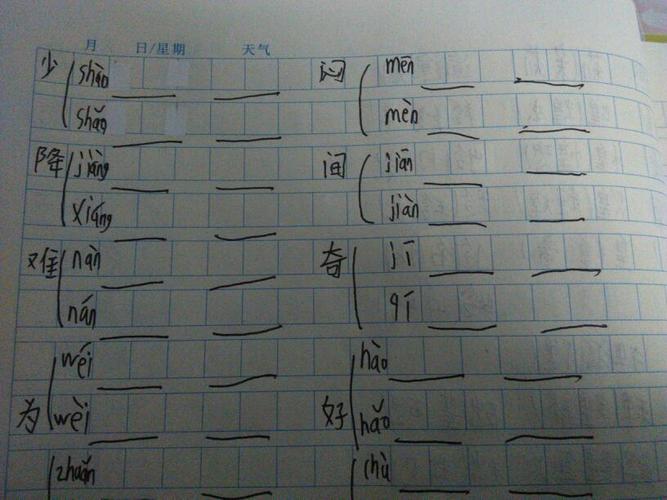 月 日/星期 天气
少 shào 闷 mēn
shǎo mèn
降 jiàng 间 jiān
xiáng jiàn
难 nàn 奇 jī
nán qí
wéi hào
为 wèi 好 hǎo
zhuǎn chù